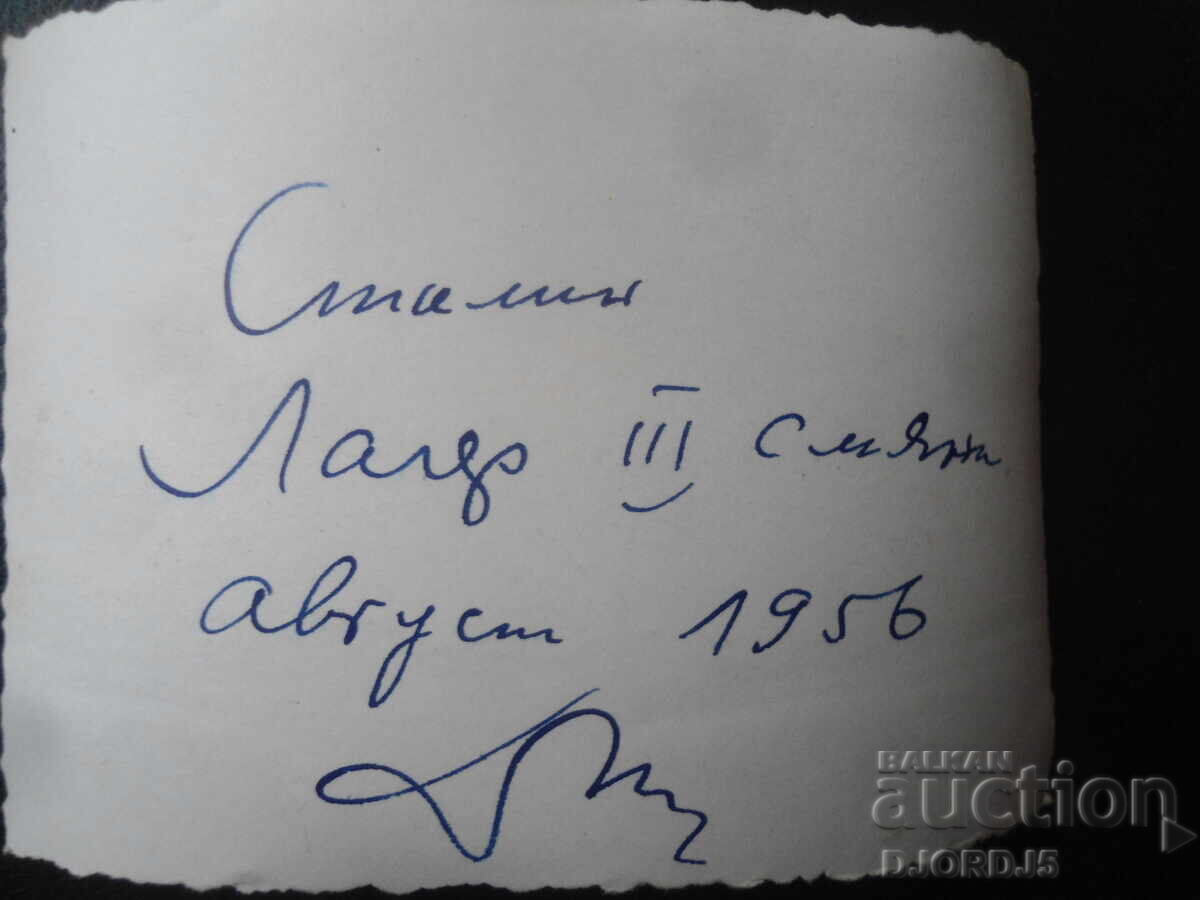 Сталин
Лагер III смяна
август 1956
BALKAN
auction
DJORDJ5